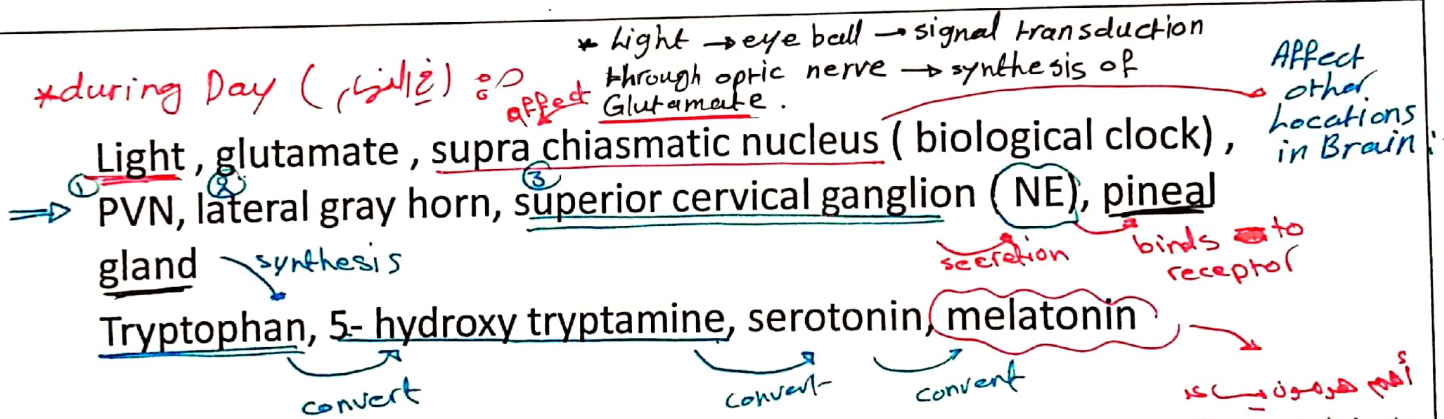 * Light → eye ball → signal transduction
through optic nerve → synthesis of
Glutamate.
*during Day (في النهار) :
affect
Affect
other
Locations
in Brain
Light , glutamate , supra chiasmatic nucleus ( biological clock) ,
① ② ③
⇒ PVN, lateral gray horn, superior cervical ganglion ( NE), pineal
gland
synthesis
secretion
binds to
receptor
Tryptophan, 5- hydroxy tryptamine, serotonin, melatonin
convert
convert
convert
أهم هرمون